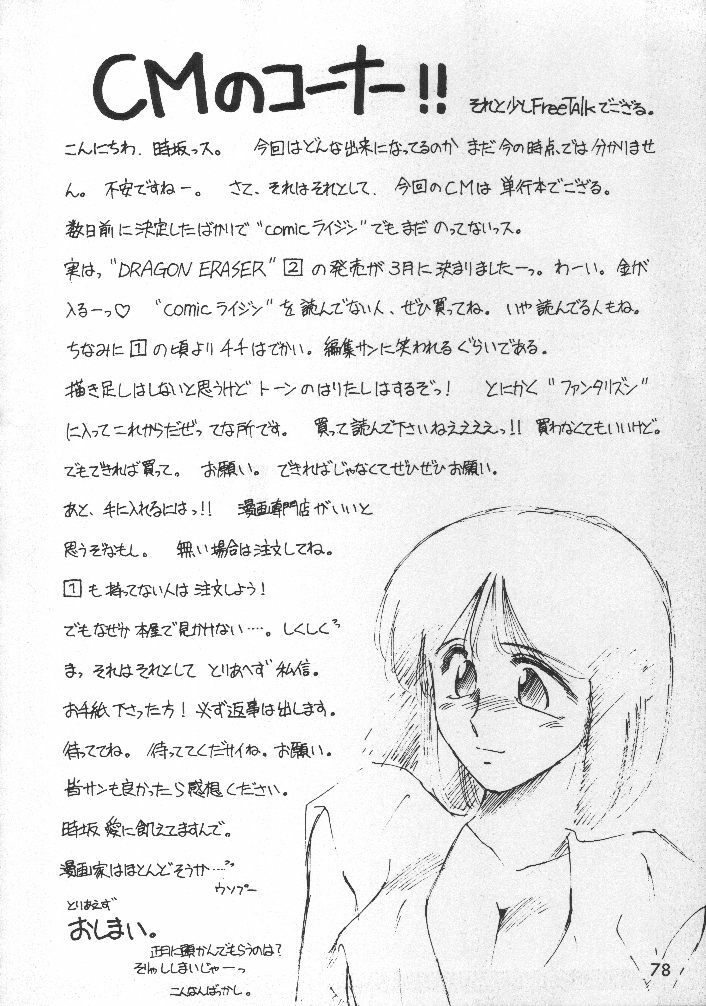 CMのコーナー!!
それと少しFreeTalkでござる。
こんにちわ、時坂っス。 今回はどんな出来になってるのか まだ今の時点では分かりませ
ん。 不安ですねー。 さて、それはそれとして、今回のCMは 単行本でござる。
数日前に決定したばかりで"comicライジン"でもまだ のってないっス。
実はっ"DRAGON ERASER" 2 の発売が3月に決まりましたーっ。わーい。金が
入るーっ♡ "comicライジン"を読んでない人、ぜひ買ってね。いや読んでる人もね。
ちなみに 1 の頃よりチチはでかい。編集サンに笑われるぐらいである。
描き足しはしないと思うけどトーンのはりたしはするぞっ! とにかく"ファンタリズン"
に入ってこれからだぜってな所です。 買って読んで下さいねええええっ!! 買わなくてもいいけど。
でもできれば買って。 お願い。 できればじゃなくてぜひぜひお願い。
あと、手に入れるにはっ!! 漫画専門店がいいと
思うぞなもし。 無い場合は注文してね。
1 も持ってない人は注文しよう!
でもなぜか本屋で見かけない……。しくしく
まっ それはそれとして とりあへず私信。
お手紙下さった方! 必ず返事は出します。
待っててね。 待っててくだサイね。お願い。
皆サンも良かったら感想ください。
時坂 愛に飢えてますんで。
漫画家はほとんどそうか…
ウソプー
とりあえず
おしまい。
正月に頭かんでもらうのは?
そりゃししまいじゃーっ
こんなんばっかし。
78